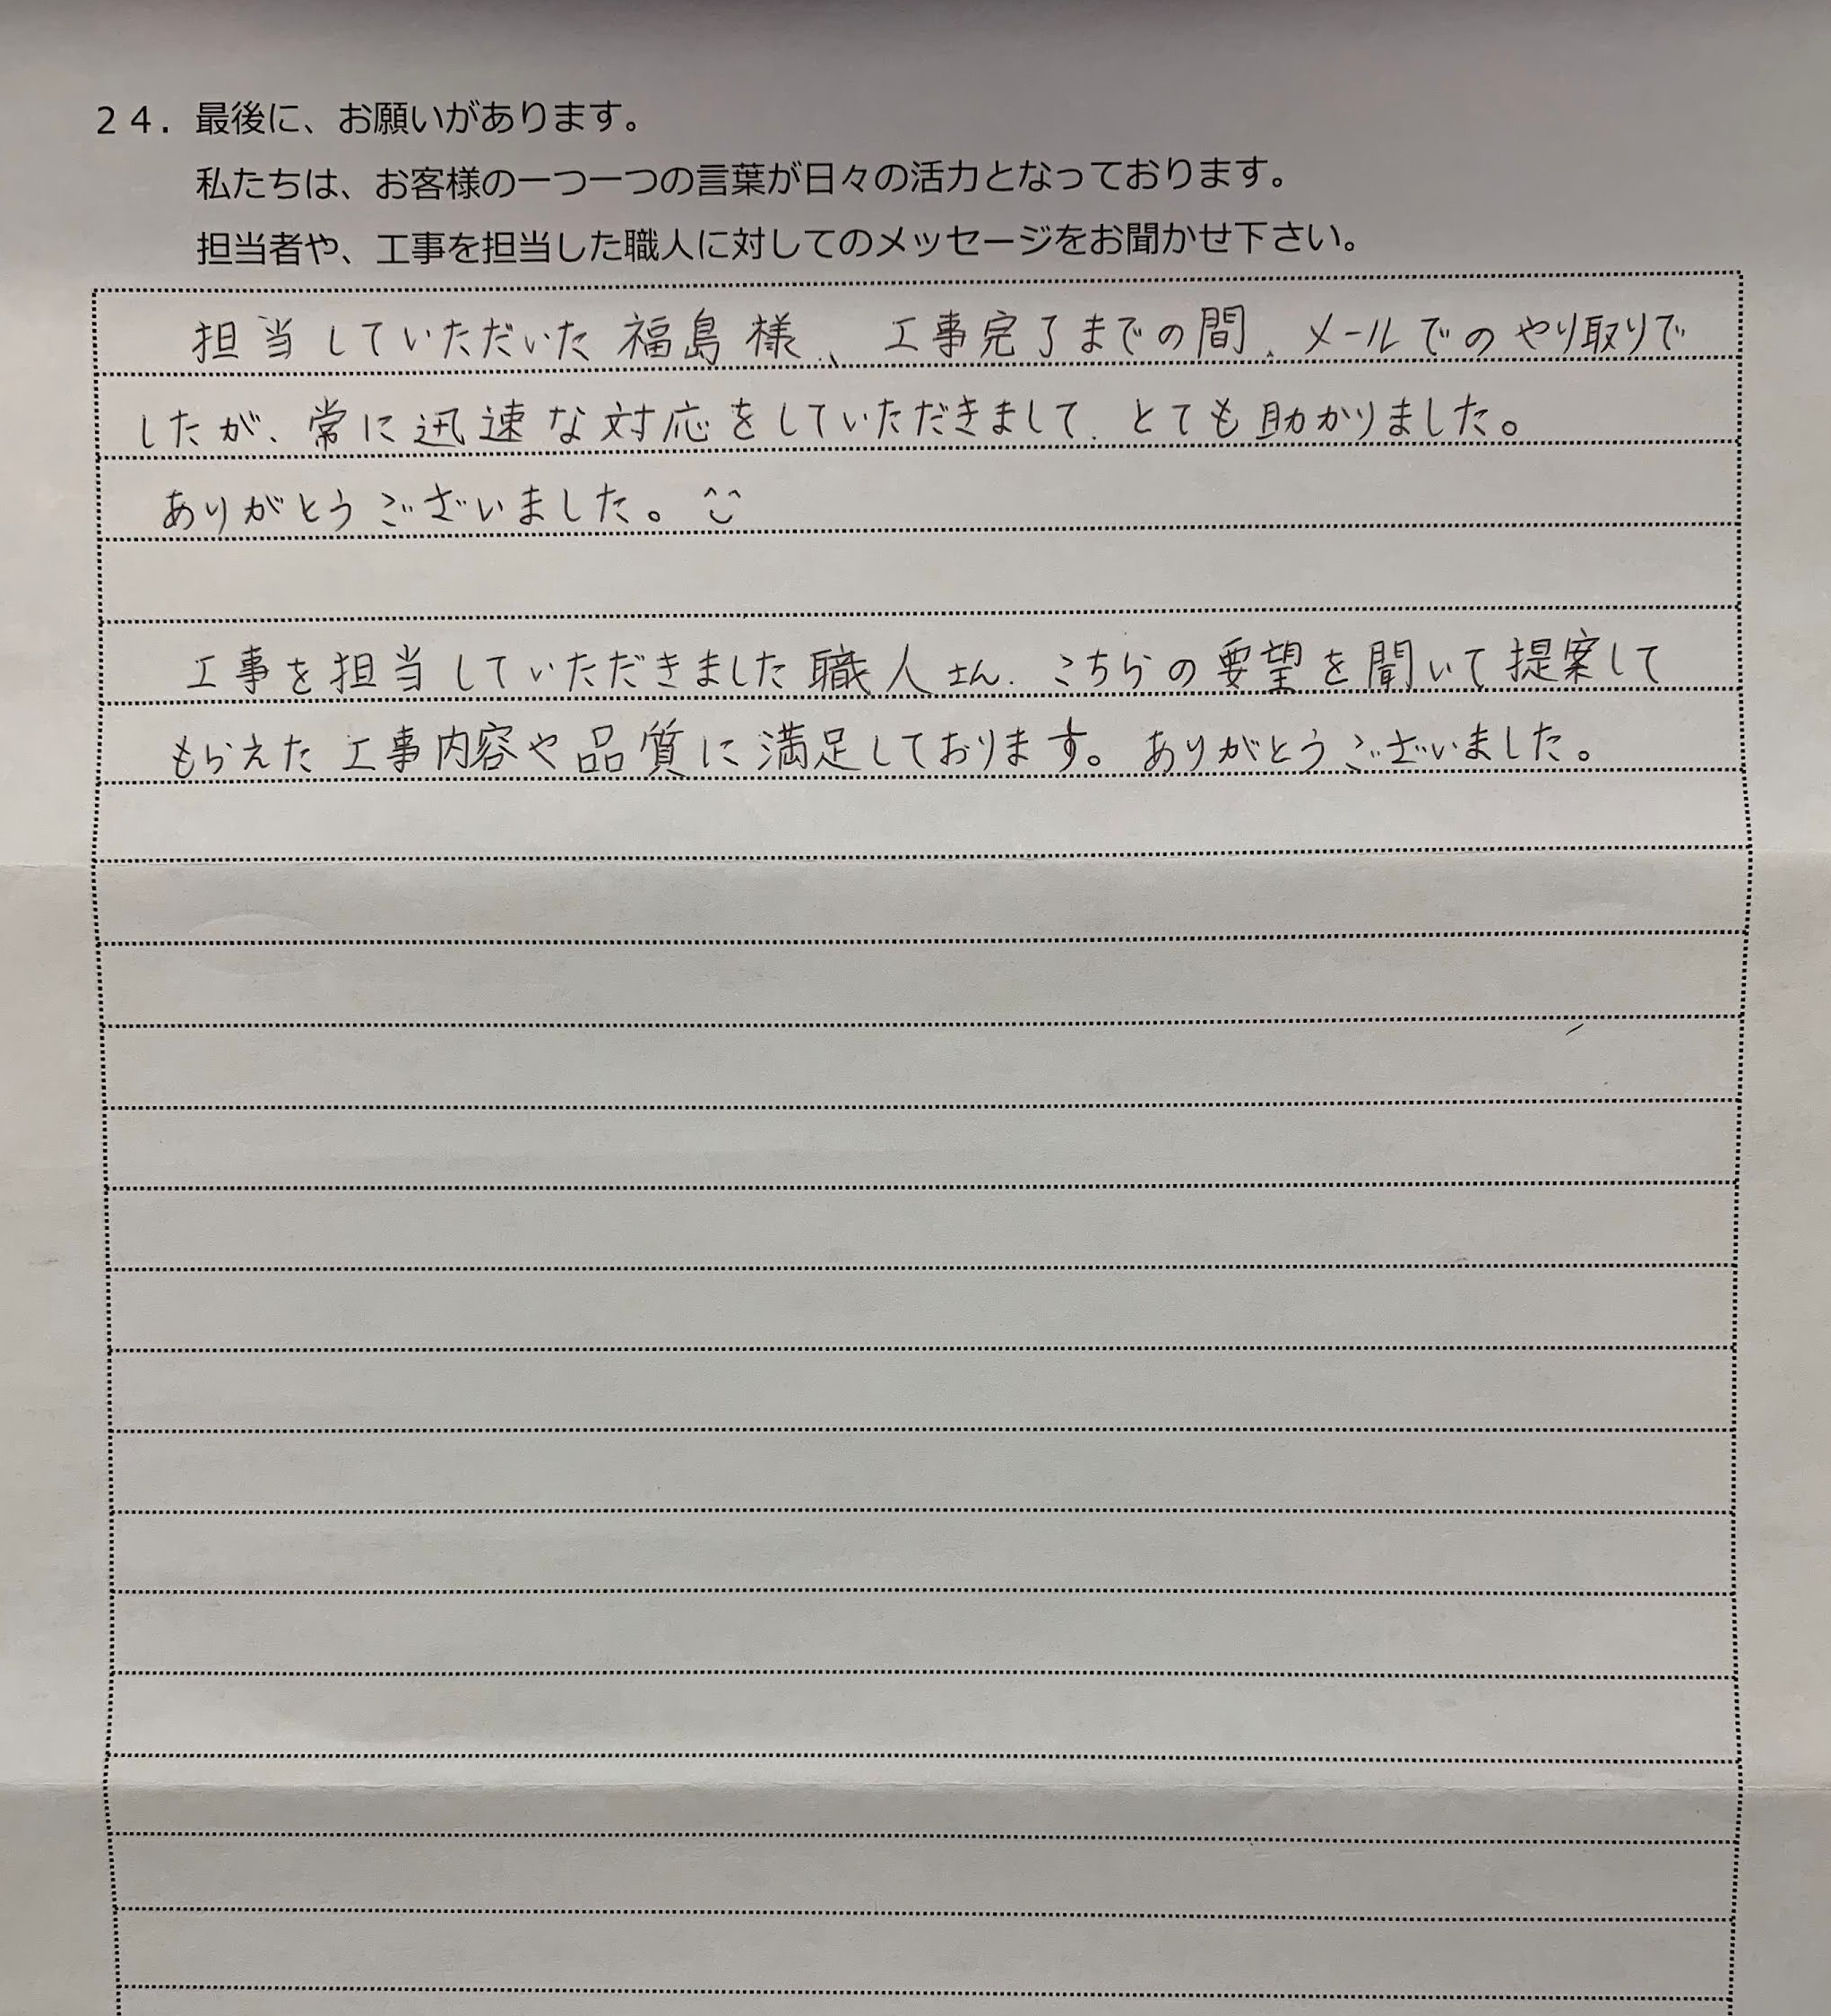 ２４．最後に、お願いがあります。
私たちは、お客様の一つ一つの言葉が日々の活力となっております。
担当者や、工事を担当した職人に対してのメッセージをお聞かせ下さい。
担当していただいた福島様、工事完了までの間、メールでのやり取りで
したが、常に迅速な対応をしていただきまして、とても助かりました。
ありがとうございました。^^
工事を担当していただきました職人さん、こちらの要望を聞いて提案して
もらえた工事内容や品質に満足しております。ありがとうございました。